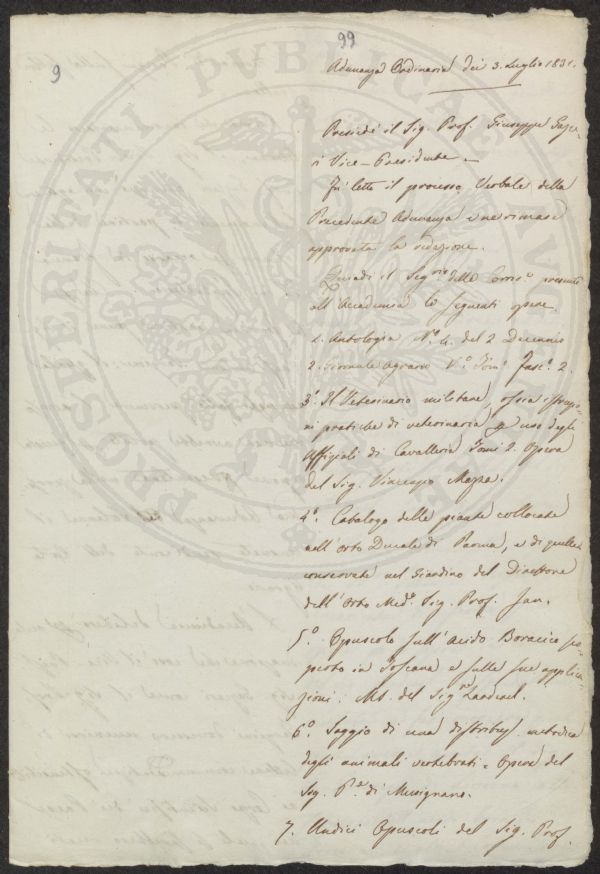 99
9
Adunanza Ordinaria dei 3. Luglio 1831.
Presiede il Sig. Prof. Giuseppe Gazze-
ri Vice-Presidente.
Fu letto il processo Verbale della
Precedente Adunanza e ne rimase
approvata la redazione.
Quindi il Seg.rio delle Corris.e presentò
all'Accademia le seguenti opere.
1. Antologia N.o 4. del 2 Decennio
2. Giornale Agrario V.o Tom.o Fasc.o 2.
3.o Il Veterinario militare, ossia istruzio-
ni pratiche di veterinaria p uso degli
Uffiziali di Cavalleria Tomi 2. Opera
del Sig. Vincenzo Mazza.
4.o Catalogo delle piante collocate
nell'Orto Ducale di Parma, e di quelle
conservate nel Giardino del Direttore
dell'Orto Med.o Sig. Prof. Jan.
5.o Opuscolo sull'acido Boracico sco-
perto in Toscana e sulle sue applica-
zioni. Ms. del Sig.r
6.o Saggio di una distribuz. metodica
degli animali vertebrati. Opera del
Sig. P.e di Musignano.
7. Undici Opuscoli del Sig. Prof.
PROSPERITATI PVBLICAE AVGENDAE